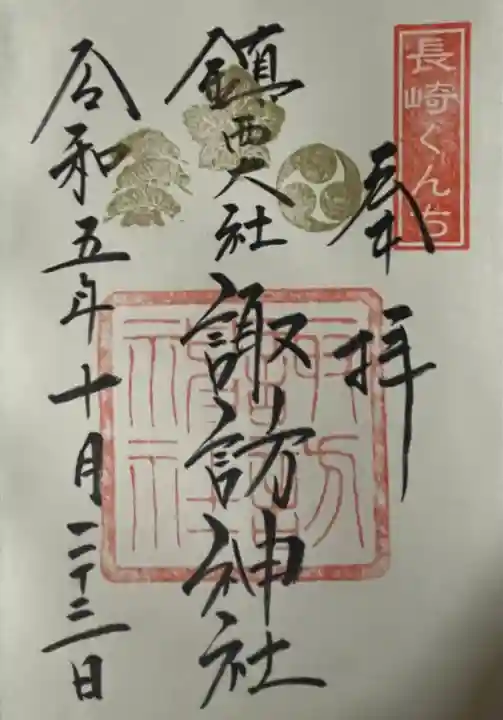 長崎くんち
奉拝
鎮西大社 諏訪神社
令和五年十月二十三日
諏訪神社